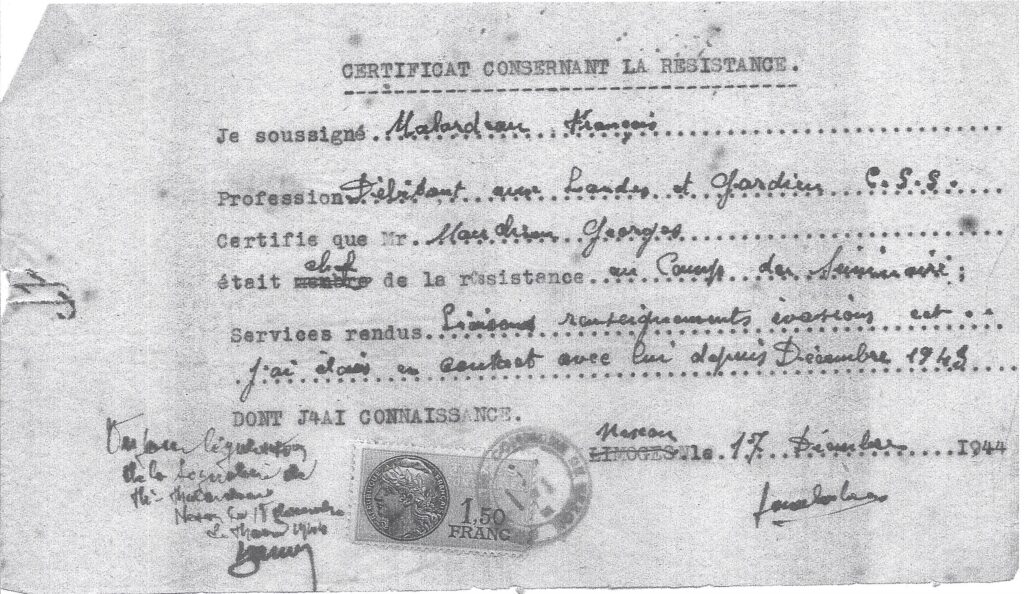 CERTIFICAT CONSERNANT LA RESISTANCE.
Je soussigné Malardeau François
Profession Débitant aux Landes et Gardien C.S.S.
Certifie que Mr. Georges
chef
était membre de la résistance au Camp du Séminaire;
Services rendus Liaisons renseignements évasions ect..
j'ai étais en contact avec lui depuis Décembre 1943
DONT J4AI CONNAISSANCE.
Nexon
LIMOGES.le 17 Décembre 1944
Vu pour légalisation
de la signature de
Mr Malardeau
Nexon le 18 Décembre
Le Maire 1944
1,50
FRANC